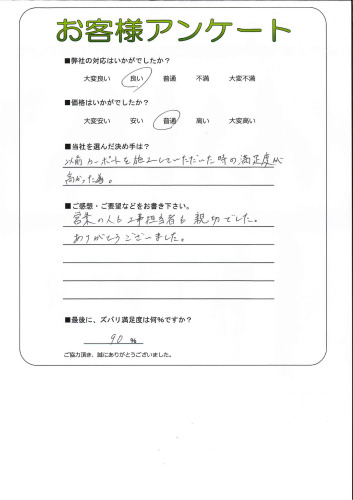 お客様アンケート
■弊社の対応はいかがでしたか？
大変良い 良い 普通 不満 大変不満
■価格はいかがでしたか？
大変安い 安い 普通 高い 大変高い
■当社を選んだ決め手は？
以前カーポートを施工していただいた時の満足度が
高かった為。
■ご感想・ご要望などをお書き下さい。
営業の人も工事担当者も親切でした。
ありがとうございました。
■最後に、ズバリ満足度は何%ですか？
90 %
ご協力頂き、誠にありがとうございました。